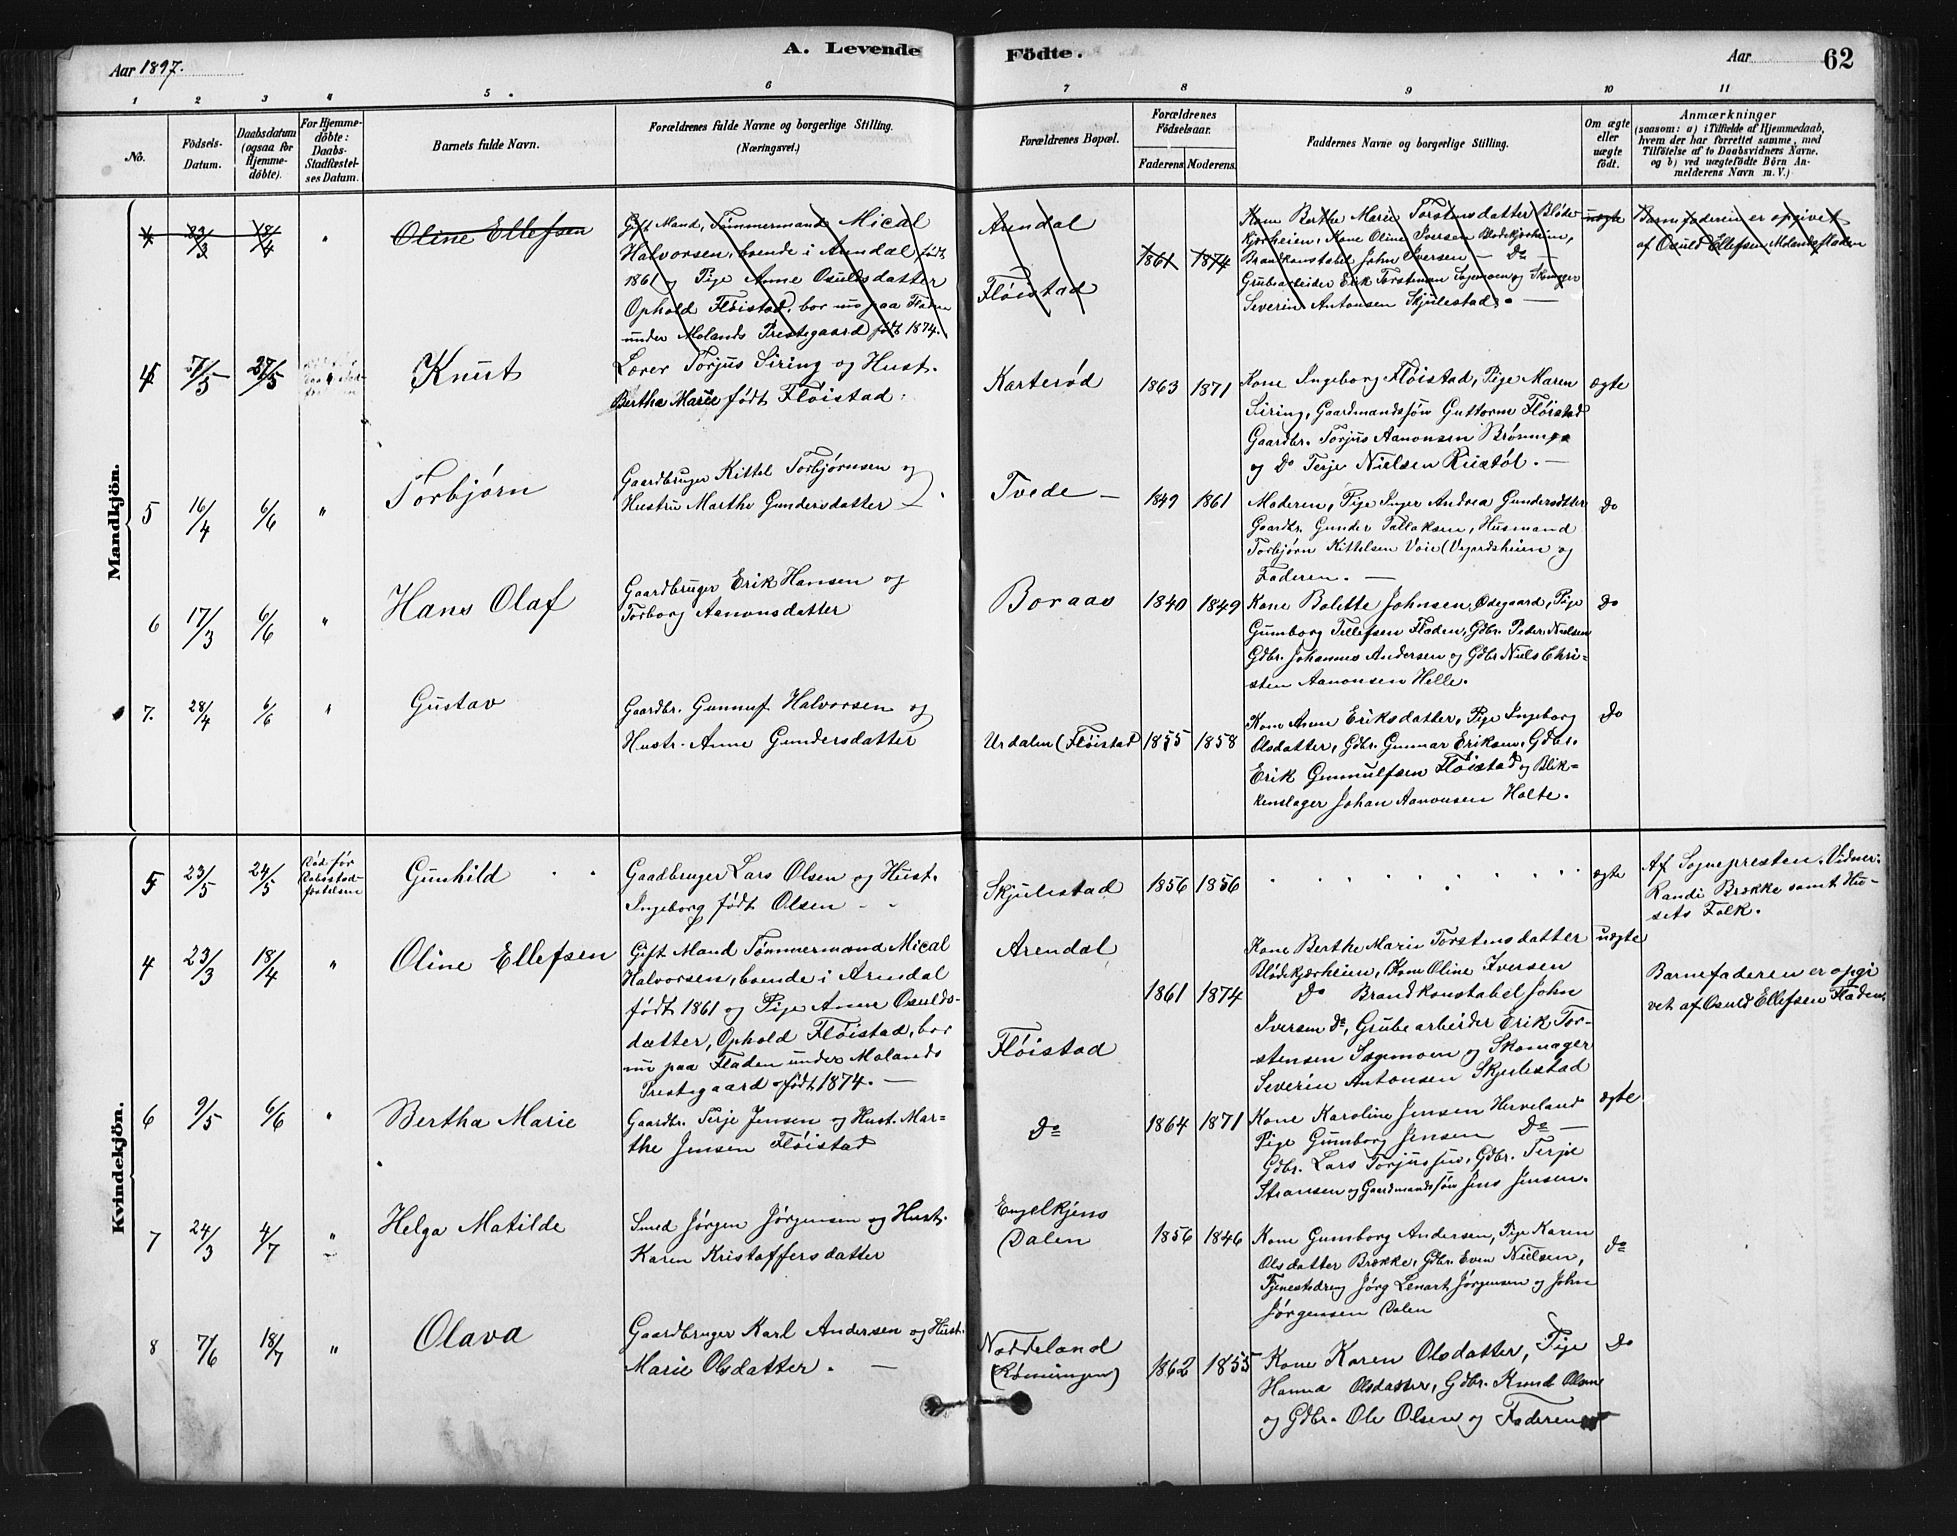 A. Levende Födte.
Aar 1897.
Aar 62
1 2 3 " 5 6 7 8 9 10 11
No.
Födsels-
Datum.
Daabsdatum
(ogsaa for
Hjemme-
döbte).
For Hjemme-
döbte:
Daabs-
Stadfæstel-
ses Datum.
Barnets fulde Navn.
Forældrenes fulde Navne og borgerlige Stilling.
(Næringsvei.)
Forældrenes Bopæl.
Forældrenes
Födselsaar.
Faderens Moderens.
Faddernes Navne og borgerlige Stilling.
Om ægte
eller
uægte
födt.
Anmærkninger
(saasom: a) i Tilfælde af Hjemmedaab,
hvem der har forrettet samme, med
Tilföielse af to Daabsvidners Navne,
og b) ved uægtefödte Börn An-
melderens Navn m. V.)
Mandkjön.
4 23/3 18/4 " Oline Ellefsen
Gift Mand, Tømmermand Mical
Halvorsen, boende i Arndal, født
1861 og Pige Anne Osuldsdatter
Ophold Fløistad, bor nu paa Fladen
under Molands Prestegaard født 1874.
Arndal
Fløistad
1861 1874
Kone Berthe Marie Torstensdatter Bløde-
kjærheien, Kone Oline Iversen Blødekjærheien,
Brandkonstabel John Iversen - Do -
Grubearbeider Erik Torstensen Sagemoen og Skomager
Severin Antonsen Skjulestad. -
uægte
Barnefaderen er opgivet
af Osuld Ellefsen Molands fladen
4 27/5
Knut
Lærer Torjus Siring og Hust.
Bertha Marie født Fløistad.
Karterød
1863 1871
Kone Ingeborg Fløistad, Pige Maren
Siring, Gaardmandssøn Guttorm Fløistad
Gaardbr. Torjus Aanonsen Brømnes
og Do Terje Nielsen Rustøl. -
ægte
5 16/4 6/6 " Torbjørn
Gaardbruger Kittel Torbjørnsen og
Hustru Marthe Gundersdatter -
Tvede -
1849 1861
Moderen, Pige Inger Andrea Gundersdtter
Gaardbr. Gunder Tallaksen, Husmand
Torbjørn Kittelsen Voie (Vegardsheien og
Faderen. -
Do
6 17/3 6/6 " Hans Olaf
Gaardbruger Erik Hansen og
Torborg Aanonsdatter
Boraas
1840 1849
Kone Bolette Johnsen, Osegaard, Pige
Gumborg Tellefsen Fladen, Gdbr. Peder Nielsen
Gdbr. Johannes Andersen og Gdbr Niels Chri-
sten Aanonsen Helle.
Do
7. 28/4 6/6 " Gustav
Gaardbr. Gunnuf Halvorsen og
Hustr. Anne Gundersdatter
Urdalen (Fløistad
1855 1858
Kone Anne Eriksdatter, Pige Ingeborg
Olsdatter, Gdbr. Gunnar Eriksen, Gdbr.
Erik Gunnulfsen Fløistad og Blik-
kenslager Johan Aanonsen Holte.
Do
Kvindekjön.
5 23/5 24/5
Gunhild " "
Gaadbruger Lars Olsen og Hust.
Ingeborg født Olsen - -
Skjulestad
1856 1856
ægte
Af Sognepresten. Vidner:
Randi Brække samt Hu-
sets Folk.
4 23/3 18/4 " Oline Ellefsen
Gift Mand Tømmermand Mical
Halvorsen, boende i Arndal
født 1861 og Pige Anne Osulds-
datter, Ophold Fløistad, bor
nu paa Fladen under Molands
Prestegaard født 1874. -
Arendal
Fløistad
1861 1874
Kone Berthe Marie Torstensdatter
Blødekjærheien, Kone Oline Iversen
Do Brandkonstabel John
Iversen Do, Grubearbeider Erik Tor-
stensen Sagemoen og Skomager
Severin Antonsen Skjulestad
uægte
Barnefaderen er opgi
vet af Osuld Ellefsen Fladen.
6 9/5 6/6 " Bertha Marie
Gaardbr. Terje Jensen og Hust. Mar-
the Jensen Fløistad
Do
1864 1871
Kone Karoline Jensen Herveland
Pige Gumborg Jensen Do -
Gdbr. Lars Torjussen, Gdbr. Terje
Stransen og Gaardmandssøn Jens Jensen.
ægte
7 24/3 4/7 " Helga Matilde
Smed Jørgen Jørgensen og Hust.
Karen Kristoffersdatter
Engelkjens
(Dalen
1856 1846
Kone Gumborg Andersen, Pige Karen
Olsdatter Brække, Gdbr. Even Nielsen,
Tjenestedreng Jørg Lenart Jørgensen og John
Jørgensen Dalen
Do
8 7/6 18/7 " Olava
Gaardbruger Karl Andersen og Hust.
Marie Olsdatter. -
Noddeland
1862 1855
Kone Karen Olsdatter, Pige
Hanna Olsdatter, Gdbr. Knud Olsen
og Gdbr. Ole Olsen og Faderen
Do